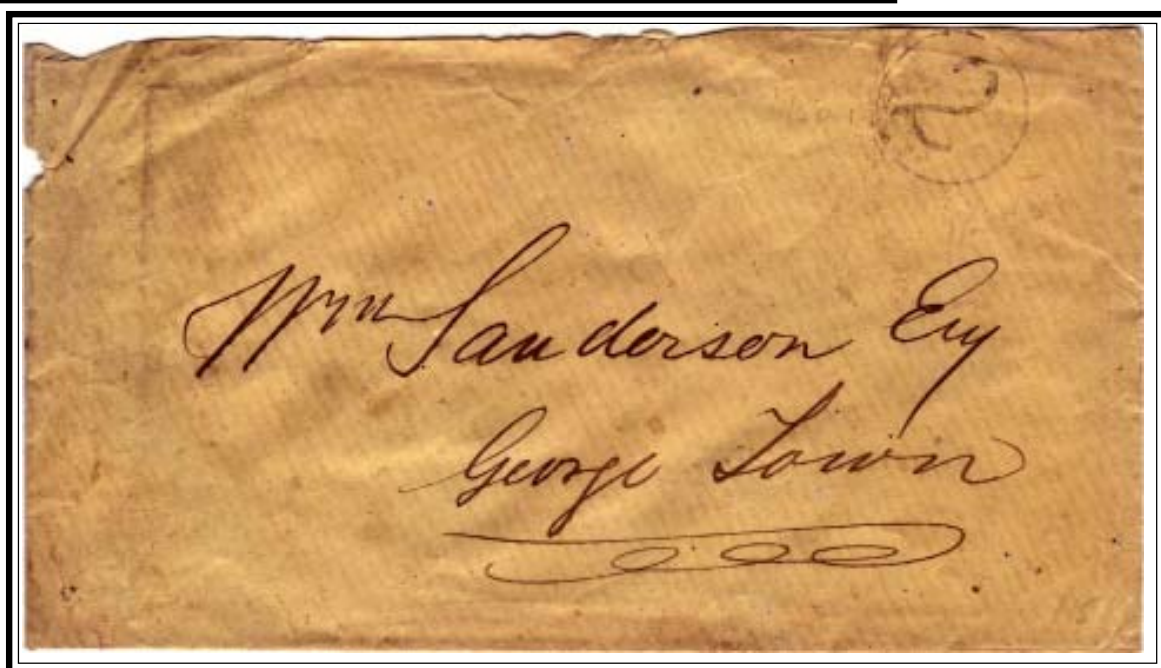 Wm Sanderson Esq
George Town